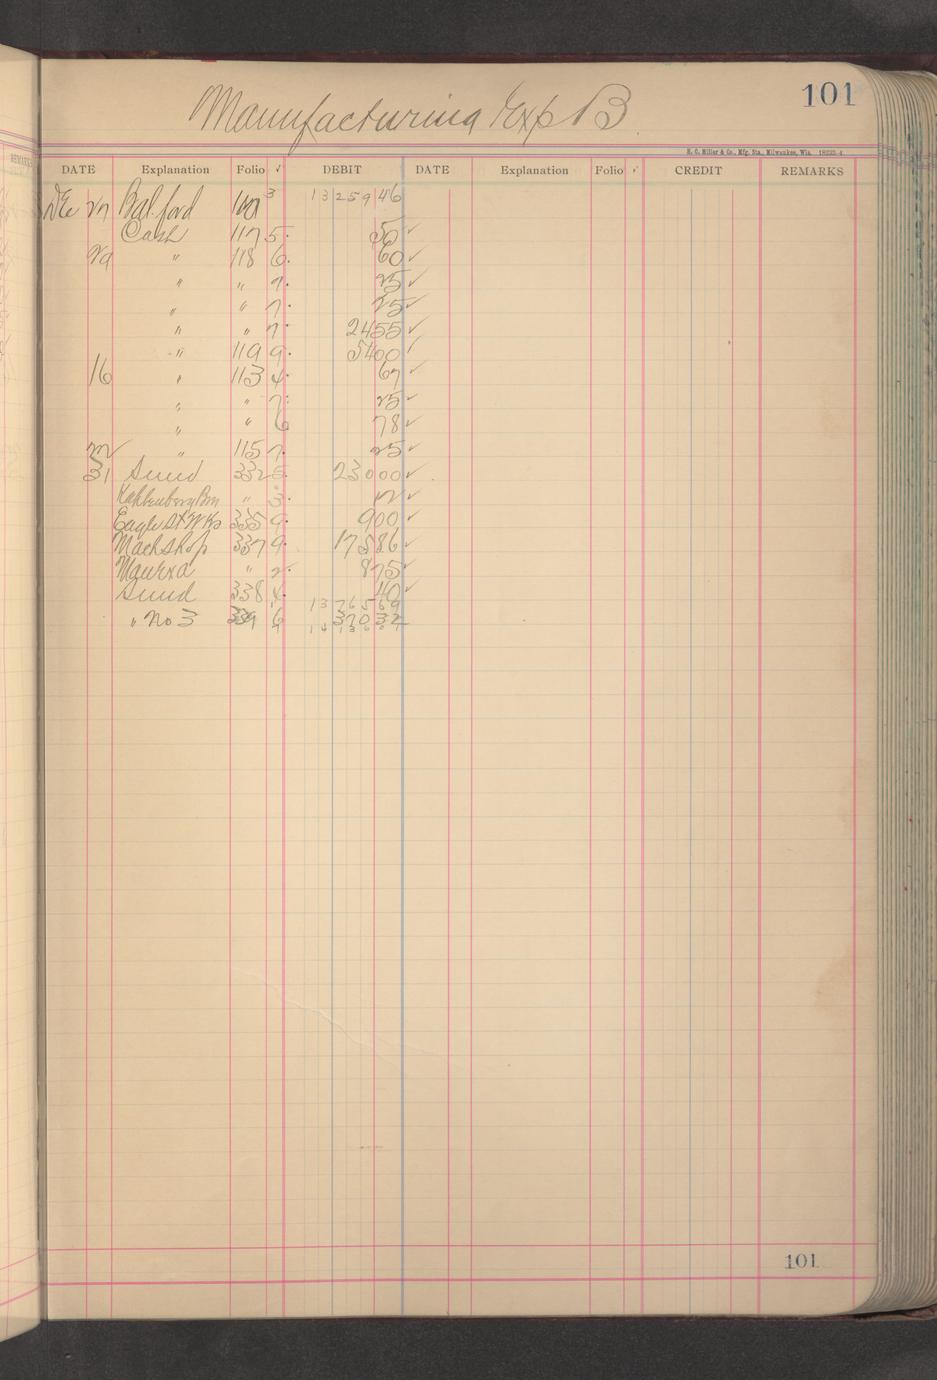 101
Manufacturing Exp B
H. C. Miller & Co., Mfg. Sta., Milwaukee, Wis. 18225-4
DATE Explanation Folio ✓ DEBIT DATE Explanation Folio ✓ CREDIT REMARKS
Dec 27 Bal. ford 100 3 13259 46
Cash 117 5 50 ✓
29 " 118 6 60 ✓
" " 7 25 ✓
" " 7 25 ✓
" " 7 24 55 ✓
" 119 9 54 00 ✓
16 " 113 4 67 ✓
" " 7 25 ✓
" " 6 78 ✓
" 115 7 25 ✓
31 Sund 332 5 230 00 ✓
Kahlenberg Bros " 3 ✓
Eagle St Wks 335 9 9 00 ✓
Mach shop 337 9 175 86 ✓
" 2 8 75 ✓
Sund 338 4 40 ✓
13765 69
" No 3 339 6 370 32
101